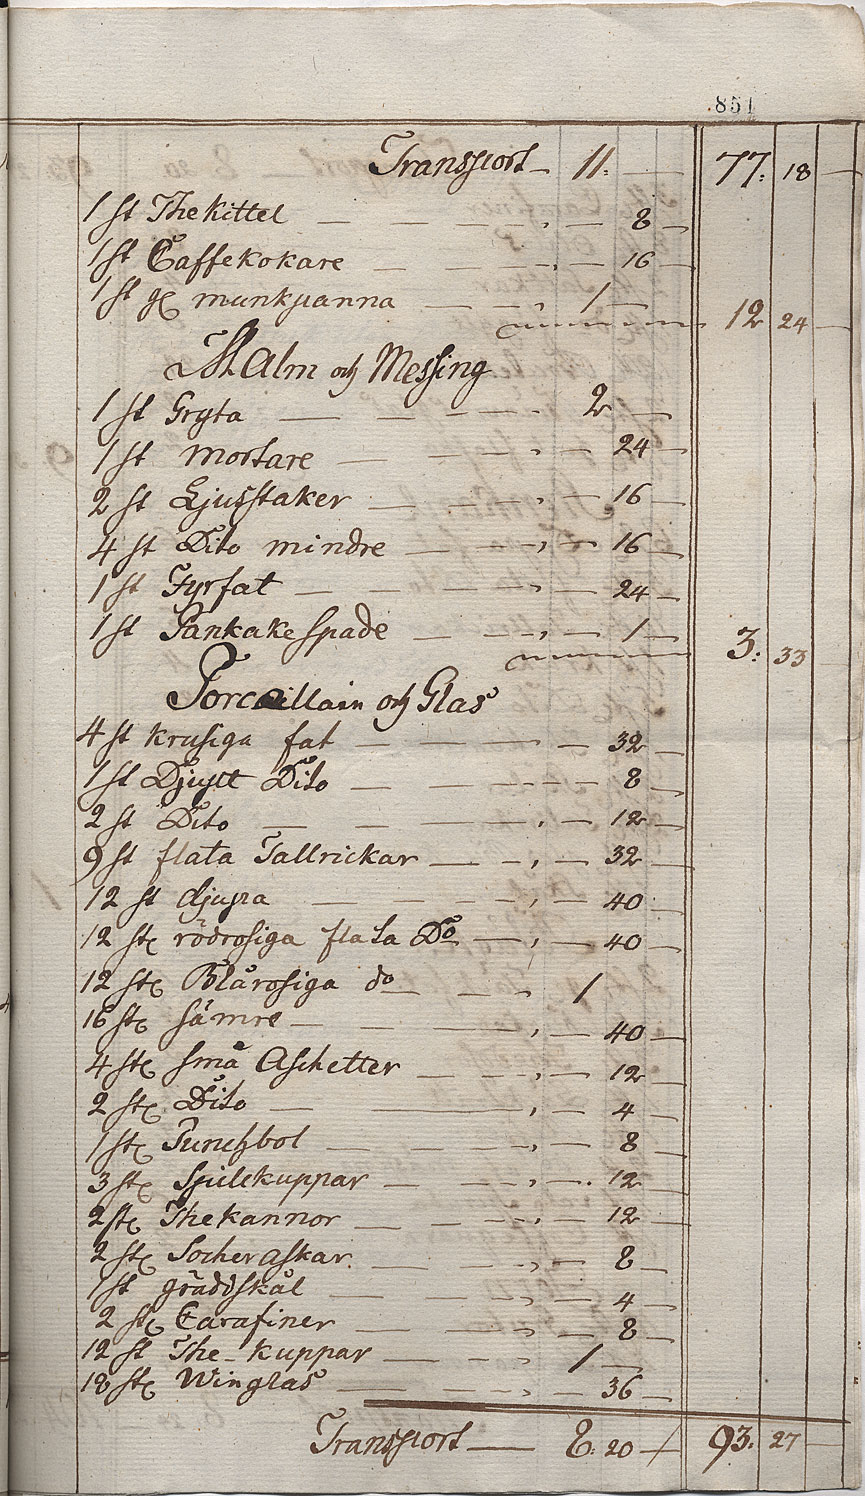 851
Transport 11. 77. 18
1 st Thekittel 8
1 st Caffekokare 16
1 st gl munkpanna 1
12 24
Malm och Messing
1 st Gryta 2
1 st Mortare 24
2 st Ljusstaker 16
4 st Dito mindre 16
1 st Fyrfat 24
1 st Pankake spade 1
3. 33
Porcaillain och Glas
4 st krusiga fat 32
1 st Djupt Dito 8
2 st Dito 12
9 st flata Tallrickar 32
12 st djupa 40
12 st rödrosiga flata Do 40
12 st Blårosiga do 1
16 st sämre 40
4 st små Aschetter 12
2 st Dito 4
1 st Punchbol 8
3 st Spilekuppar 12
2 st Thekannor 12
2 st Socheraskar 8
1 st gräddskål 4
2 st Carafiner 8
12 st The-kuppar 1
18 st Winglas 36
Transport 8. 20 93. 27